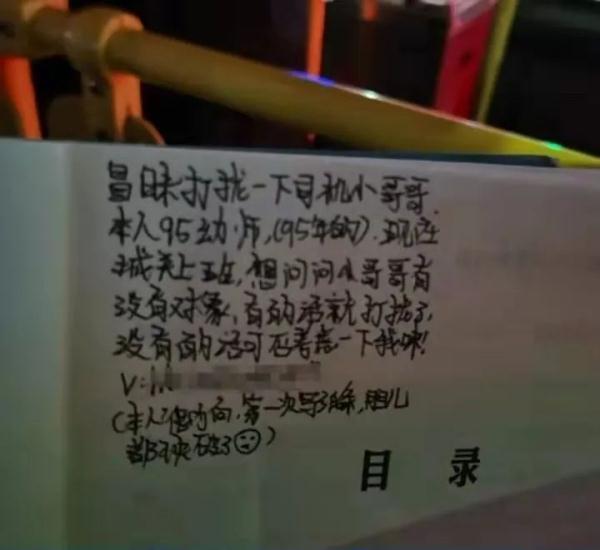 冒昧打扰一下司机小哥哥.
本人95幼师,(95年的).现在
城关上班,想问问小哥哥有
没有对象,有的话就打扰了,
没有的话可否考虑一下我呦!
V:
(本人偏内向,第一次写了除,胆儿
都快破了)
目 录